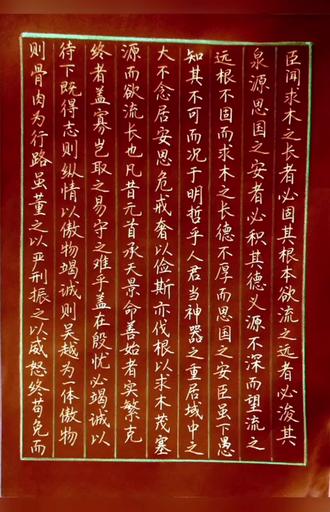 臣闻求木之长者必固其根本欲流之远者必浚其
泉源思国之安者必积其德义源不深而望流之
远根不固而求木之长德不厚而思国之安臣虽下愚
知其不可而况于明哲乎人君当神器之重居域中之
大不念居安思危戒奢以俭斯亦伐根以求木茂塞
源而欲流长也凡昔元首承天景命善始者实繁克
终者盖寡岂取之易守之难乎盖在殷忧必竭诚以
待下既得志则纵情以傲物竭诚则吴越为一体傲物
则骨肉为行路虽董之以严刑振之以威怒终苟免而